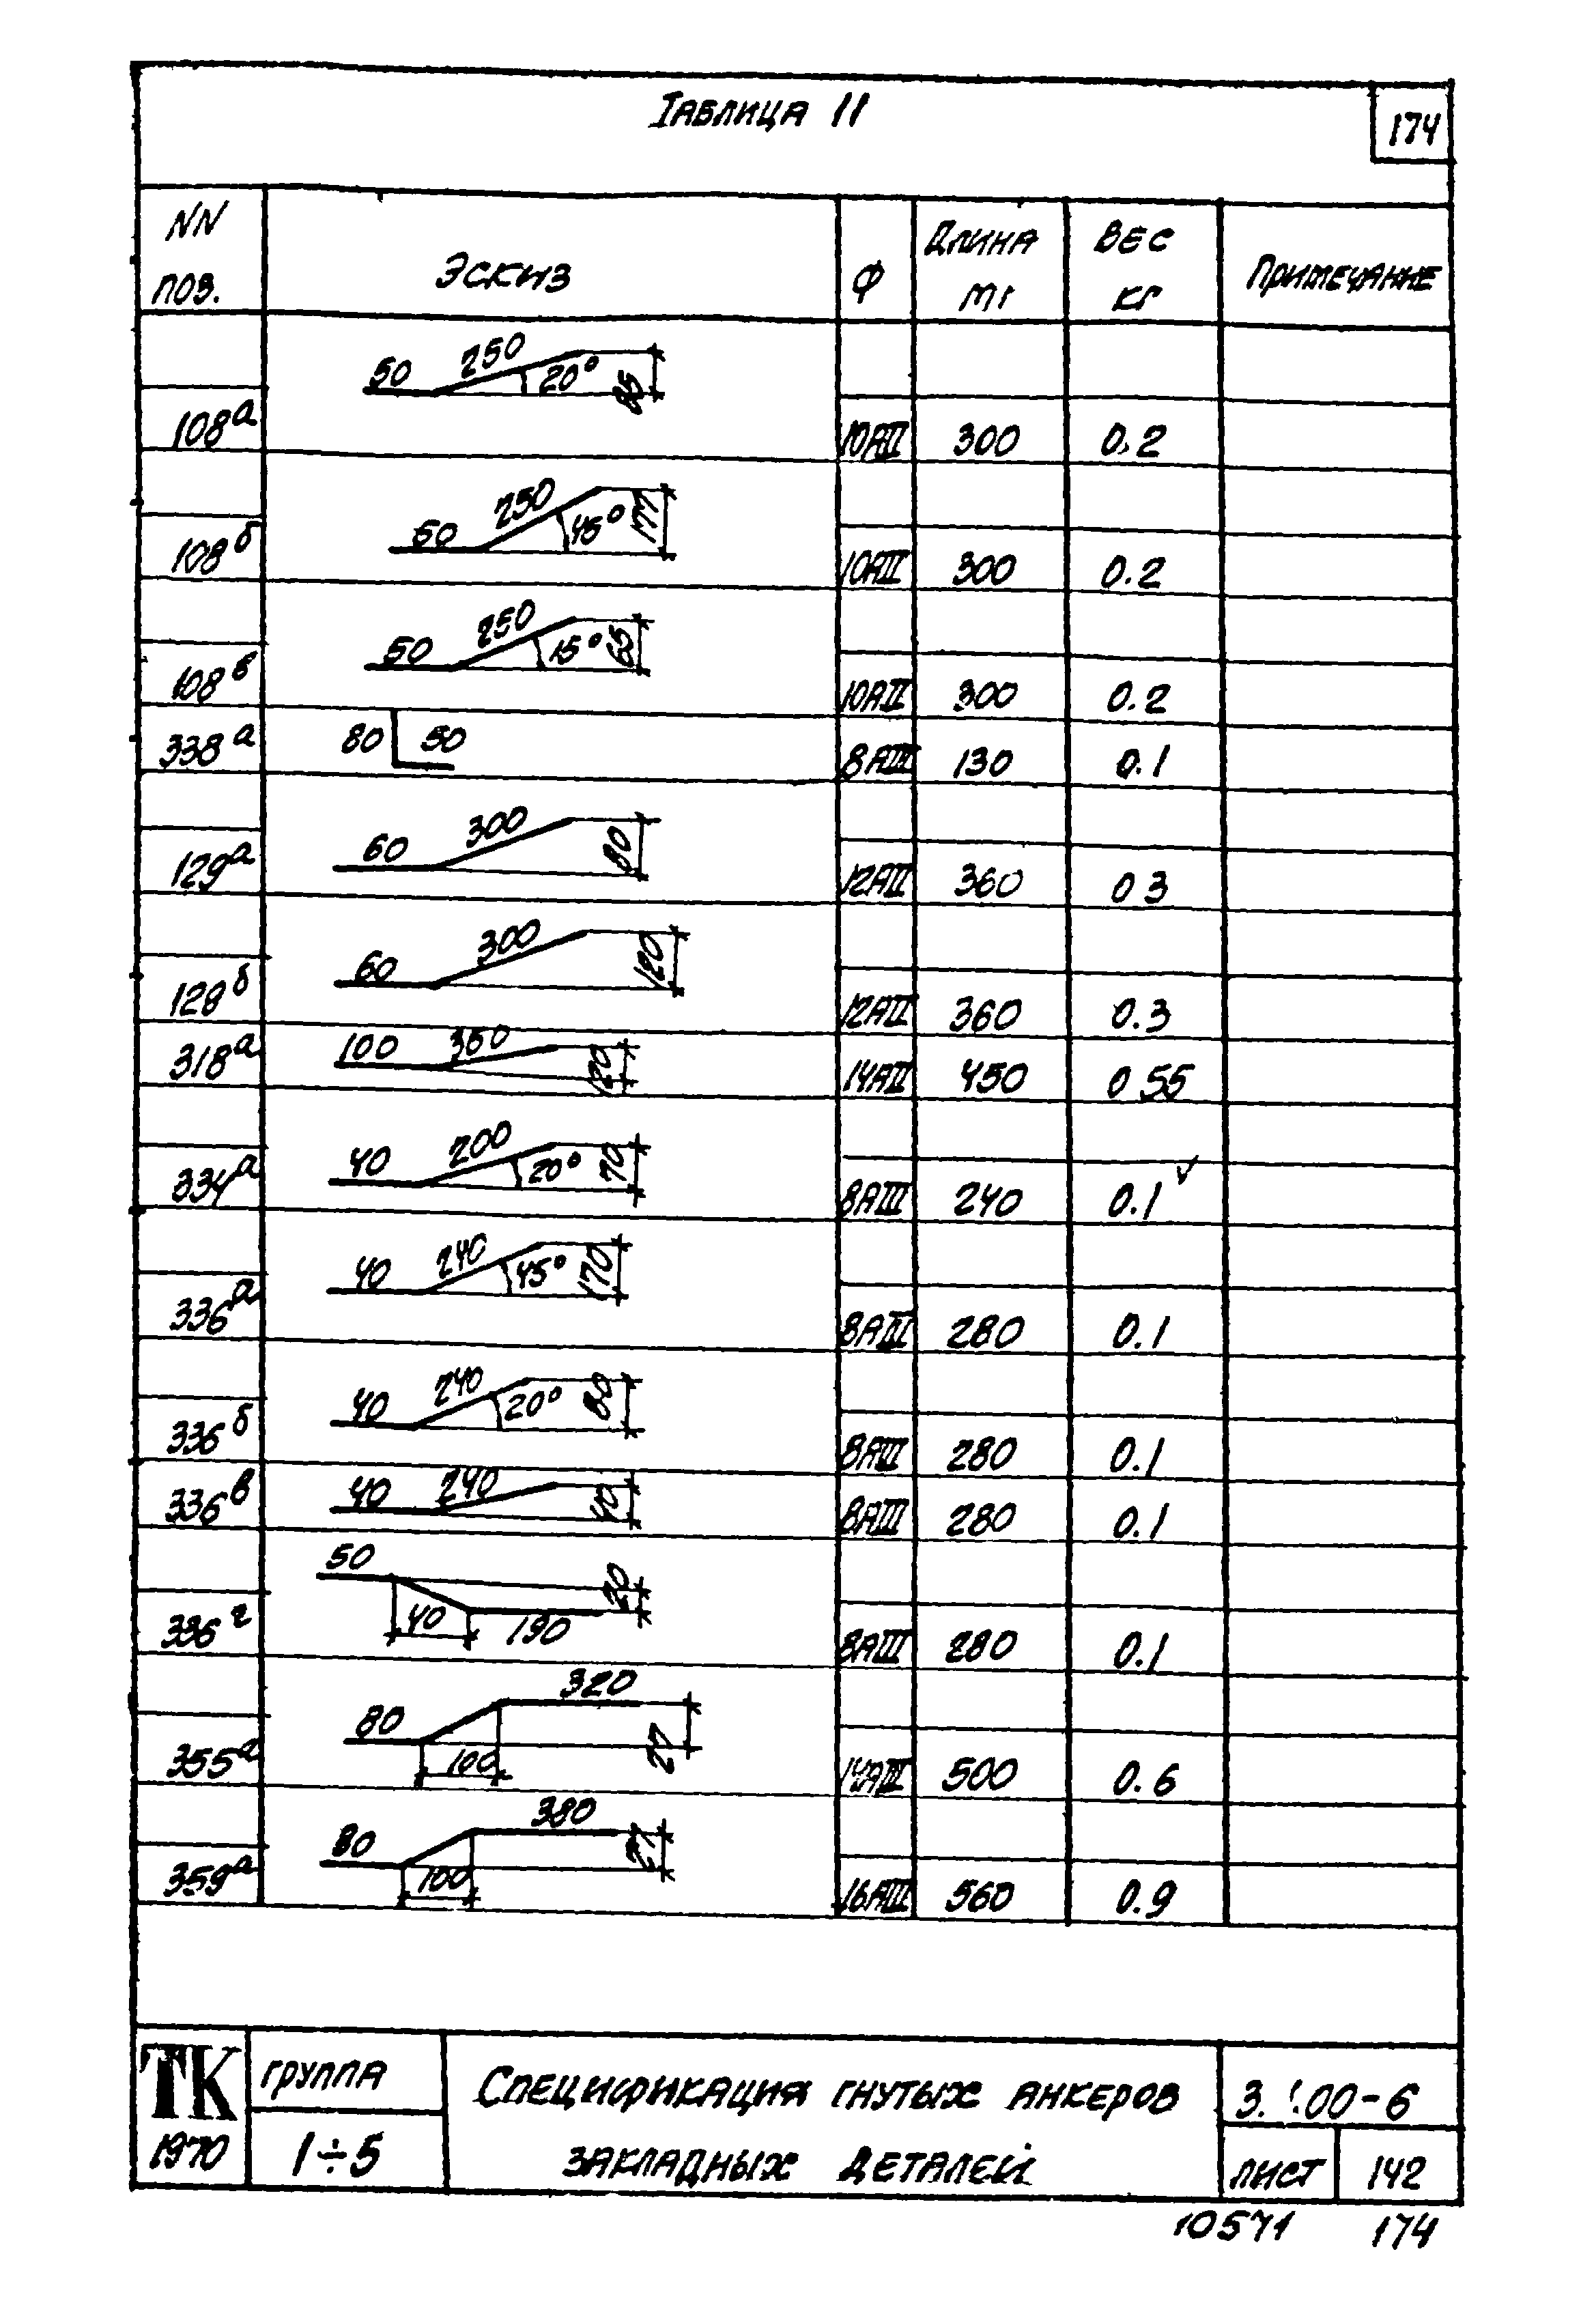 Таблица 11
174
NN поз. Эскиз Ф Длина мм Вес кг Примечание
108а 50 250 20° 85 10АII 300 0.2
108б 50 250 45° 177 10АII 300 0.2
108в 50 250 15° 65 10АII 300 0.2
338а 80 50 8АIII 130 0.1
129а 60 300 80 12АII 360 0 3
128б 60 300 120 12АII 360 0.3
318а 100 350 120 14АII 450 0 55
334а 40 200 20° 70 8АIII 240 0.1
336а 40 240 45° 170 8АIII 280 0.1
336б 40 240 20° 80 8АIII 280 0.1
336в 40 240 40 8АIII 280 0.1
336г 50 40 190 20 8АIII 280 0.1
355а 80 100 320 27 14АIII 500 0.6
359а 80 100 380 27 16АIII 560 0.9
ТК
1970
группа
1÷5
Спецификация гнутых анкеров
закладных деталей
3. .00-6
лист 142
10571 174